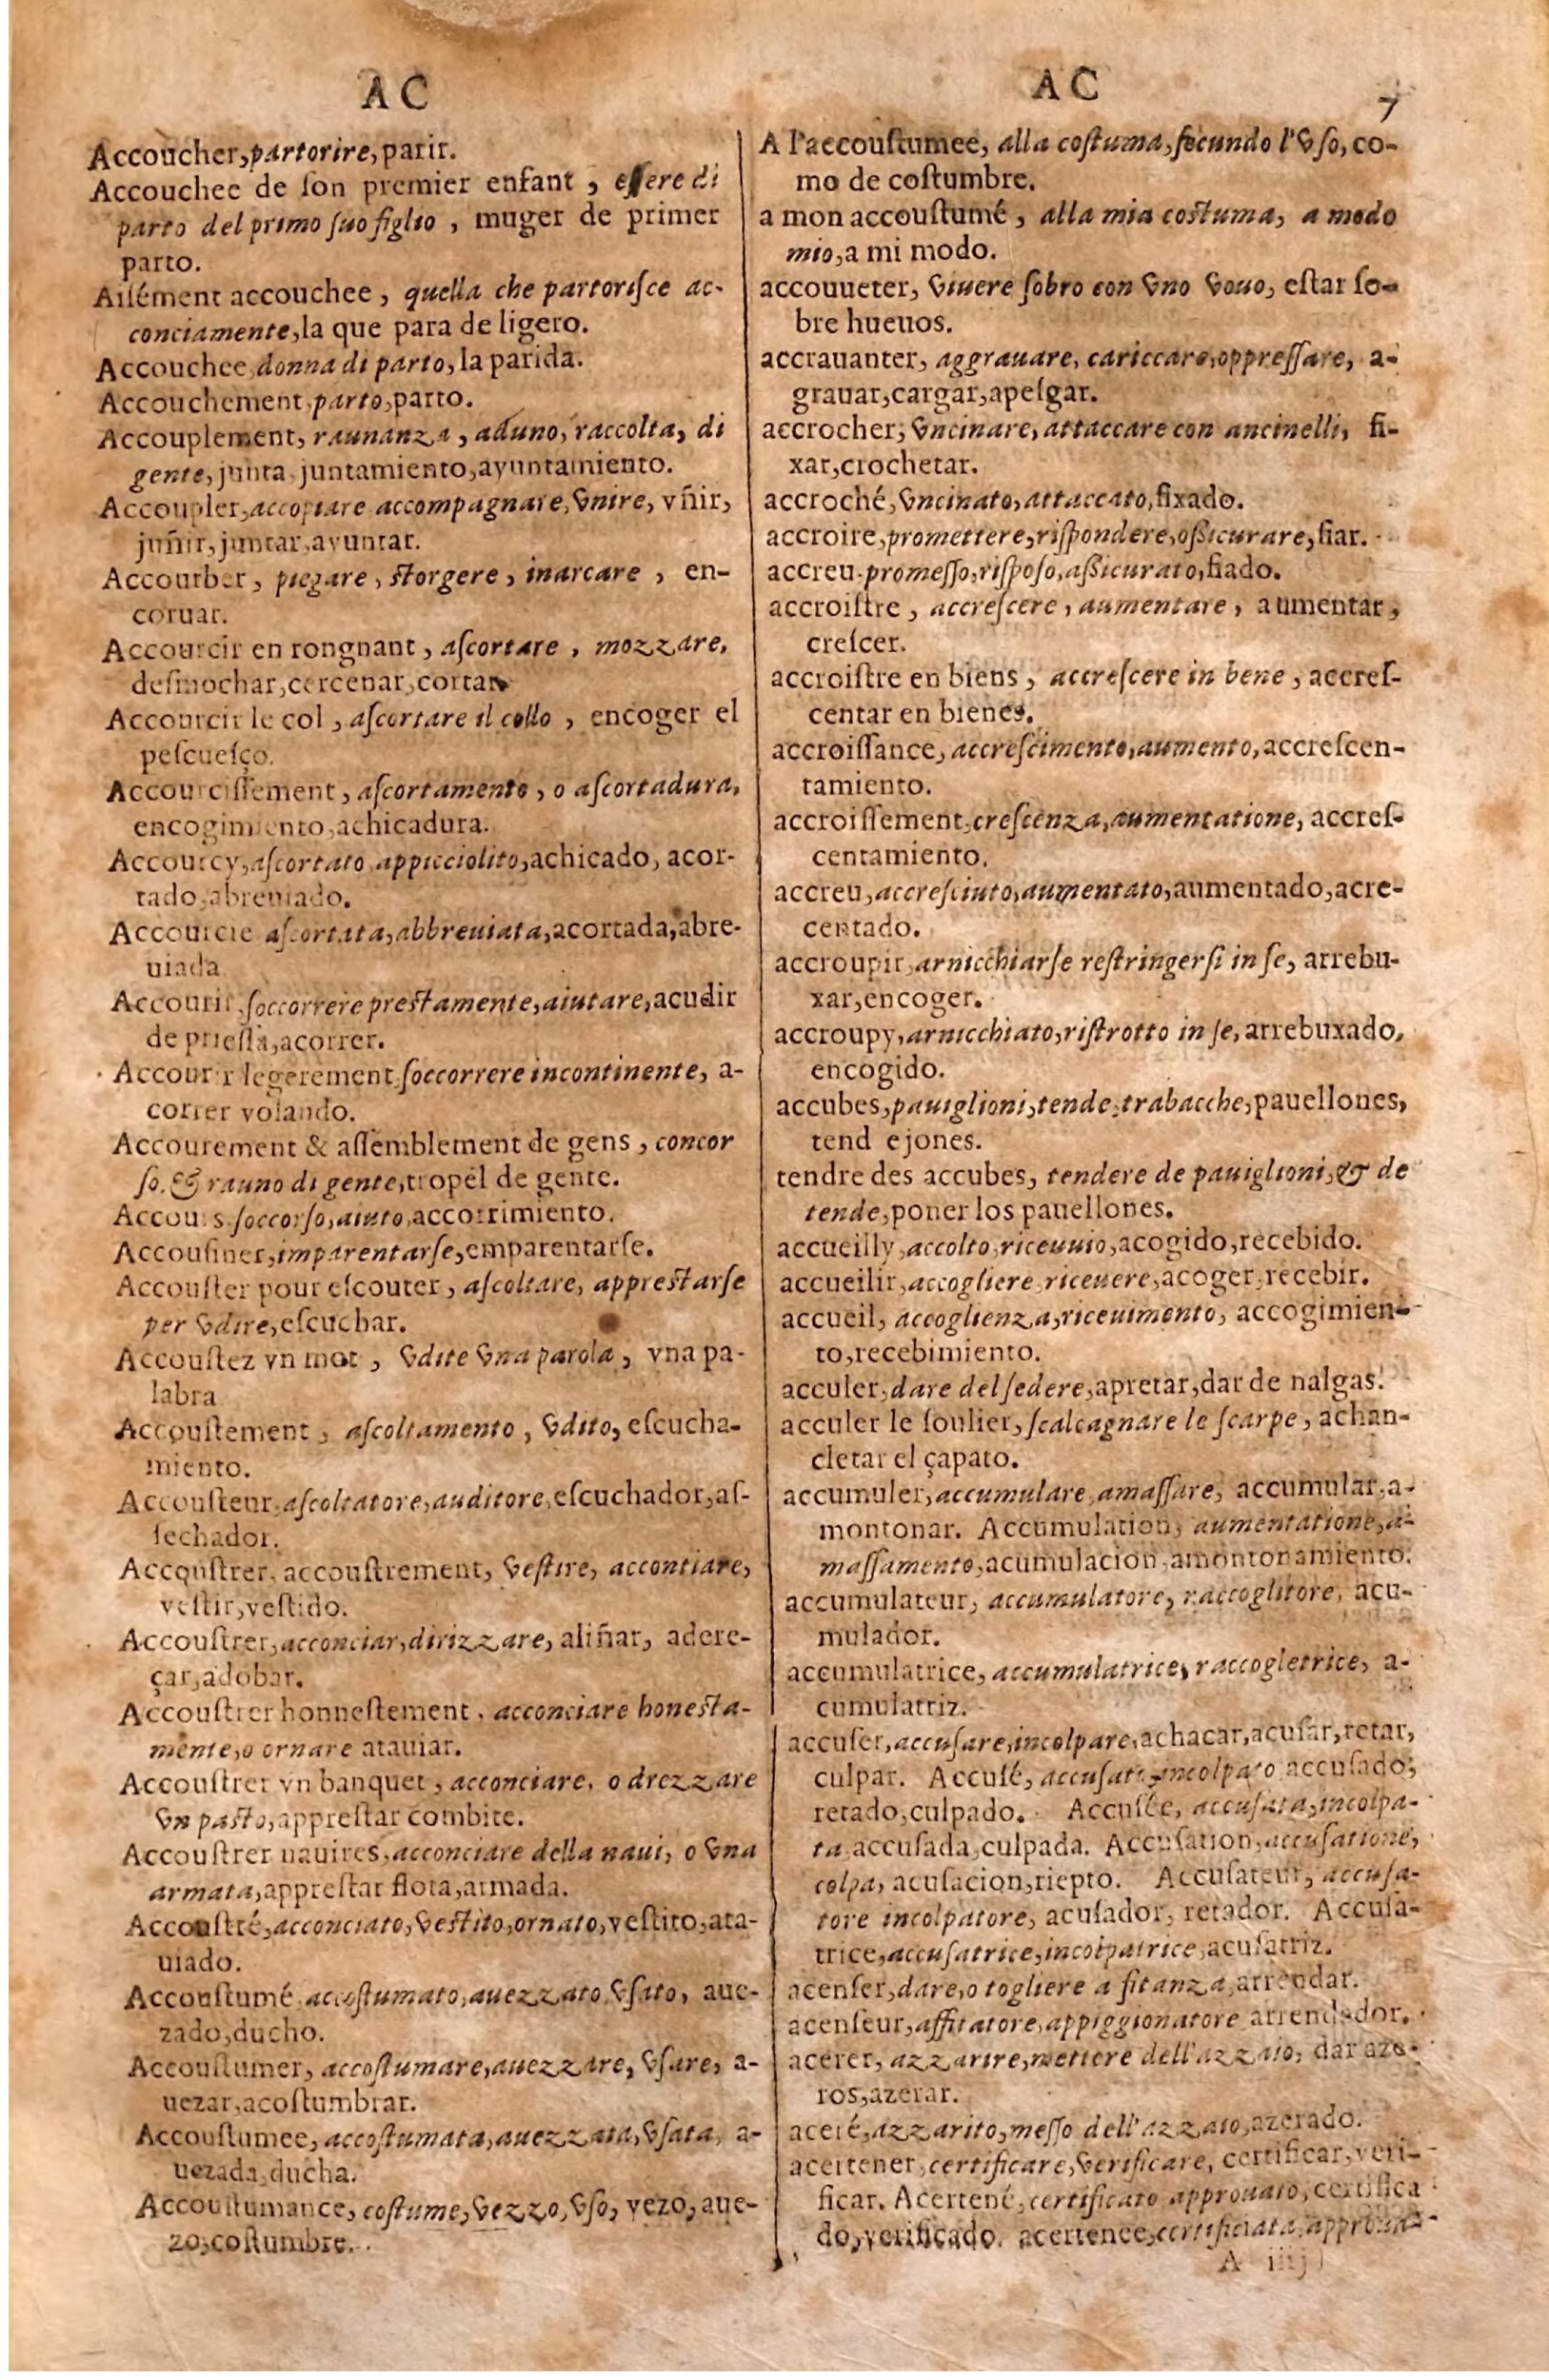 A C
Accoucher, partorire, parir.
Accouchee de ſon premier enfant , eſſere di
parto del primo ſuo figlio , muger de primer
parto.
Aiſément accouchee , quella che partoriſce ac-
conciamente, la que para de ligero.
Accouchee, donna di parto, la parida.
Accouchement, parto, parto.
Accouplement, raunanza , aduno, raccolta, di
gente, junta, juntamiento, ayuntamiento.
Accoupler, accopiare accompagnare, vnire, vñir,
juñir, juntar, ayuntar.
Accourber , piegare , ſtorgere , inarcare , en-
coruar.
Accourcir en rongnant , aſcortare , mozzare,
deſmochar, cercenar, cortar
Accourcir le col , aſcortare il collo , encoger el
peſcueſço.
Accourciſſement , aſcortamento , o aſcortadura,
encogimiento, achicadura.
Accourcy, aſcortato appicciolito, achicado, acor-
tado, abreuiado.
Accourcie aſcortata, abbreuiata, acortada, abre-
uiada
Accourir, ſoccorrere preſtamente, aiutare, acudir
de prieſſa, acorrer.
Accourir legerement, ſoccorrere incontinente, a-
correr volando.
Accourement & aſſemblement de gens , concor
ſo, & rauno di gente, tropel de gente.
Accours, ſoccorſo, aiuto, accorrimiento.
Accouſiner, imparentarſe, emparentarſe.
Accouſter pour eſcouter , aſcoltare, appreſtarſe
per vdire, eſcuchar.
Accouſtez vn mot , vdite vna parola , vna pa-
labra
Accouſtement , aſcoltamento , vdito, eſcucha-
miento.
Accouſteur, aſcoltatore, auditore, eſcuchador, aſ-
ſechador.
Accouſtrer, accouſtrement, veſtire, accontiare,
veſtir, veſtido.
Accouſtrer, acconciar, dirizzare, aliñar, adere-
çar, adobar.
Accouſtrer honneſtement , acconciare honeſta-
mente, o ornare atauiar.
Accouſtrer vn banquet , acconciare, o drezzare
vn paſto, appreſtar combite.
Accouſtrer nauires, acconciare della naui, o vna
armata, appreſtar flota, armada.
Accouſtré, acconciato, veſtito, ornato, veſtito, ata-
uiado.
Accouſtumé accoſtumato, auezzato vſato, aue-
zado, ducho.
Accouſtumer, accoſtumare, auezzare, vſare, a-
uezar, acoſtumbrar.
Accouſtumee, accoſtumata, auezzata, vſata, a-
uezada, ducha.
Accouſtumance, coſtume, vezzo, vſo, vezo, aue-
zo, coſtumbre.
A C 7
A l'accouſtumee, alla coſtuma, ſecundo l'vſo, co-
mo de coſtumbre.
a mon accouſtumé , alla mia coſtuma, a modo
mio, a mi modo.
accouueter, viuere ſobro con vno vouo, eſtar ſo-
bre hueuos.
accrauanter, aggrauare, cariccare, oppreſſare, a-
grauar, cargar, apeſgar.
accrocher, vncinare, attaccare con ancinelli, fi-
xar, crochetar.
accroché, vncinato, attaccato, fixado.
accroire, promettere, riſpondere, oſſicurare, fiar.
accreu promeſſo, riſpoſo, aſſicurato, fiado.
accroiſtre , accreſcere , aumentare , aumentar,
creſcer.
accroiſtre en biens , accreſcere in bene , accreſ-
centar en bienes.
accroiſſance, accreſcimento, aumento, accreſcen-
tamiento.
accroiſſement, creſcenza, aumentatione, accreſ-
centamiento.
accreu, accreſciuto, aumentato, aumentado, acre-
centado.
accroupir, arnicchiarſe reſtringerſi in ſe, arrebu-
xar, encoger.
accroupy, arnicchiato, riſtrotto in ſe, arrebuxado,
encogido.
accubes, pauiglioni, tende, trabacche, pauellones,
tend ejones.
tendre des accubes, tendere de pauiglioni, & de
tende, poner los pauellones.
accueilly, accolto, riceuuto, acogido, recebido.
accueilir, accogliere, riceuere, acoger, recebir.
accueil, accoglienza, riceuimento, accogimien-
to, recebimiento.
acculer, dare del ſedere, apretar, dar de nalgas.
acculer le ſoulier, ſcalcagnare le ſcarpe, achan-
cletar el çapato.
accumuler, accumulare, amaſſare, accumular, a-
montonar. Accumulation, aumentatione, a-
maſſamento, acumulacion, amontonamiento.
accumulateur, accumulatore, raccoglitore, acu-
mulador.
accumulatrice, accumulatrice, raccogletrice, a-
cumulatriz.
accuſer, accuſare, incolpare, achacar, acuſar, retar,
culpar. Accuſé, accuſato, incolpato accuſado,
retado, culpado. Accuſée, accuſata, incolpa-
ta accuſada, culpada. Accuſation, accuſatione,
colpa, acuſacion, riepto. Accuſateur, accuſa-
tore incolpatore, acuſador, retador. Accuſa-
trice, accuſatrice, incolpatrice, acuſatriz.
acenſer, dare, o togliere a fitanza, arrendar.
acenſeur, affitatore, appiggionatore arrendador.
acerer, azzarire, mettere dell'azzaio, dar aze-
ros, azerar.
aceré, azzarito, meſſo dell'azzaio, azerado.
acertener, certificare, verificare, certificar, veri-
ficar. Acertené, certificato approuato, certifica
do, verificado. acertenee, certificiata, approua-
A iiij